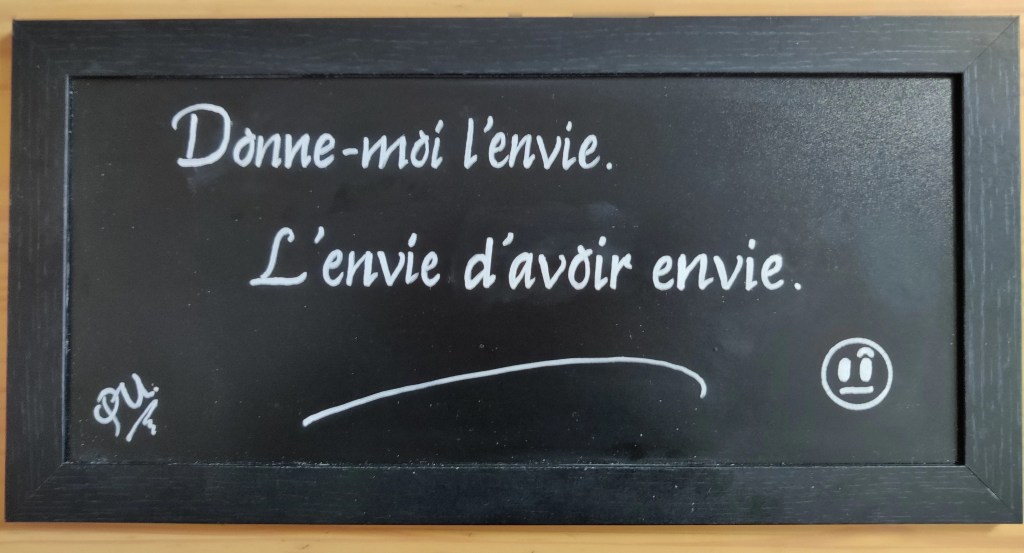 Donne-moi l'envie.
L'envie d'avoir envie.